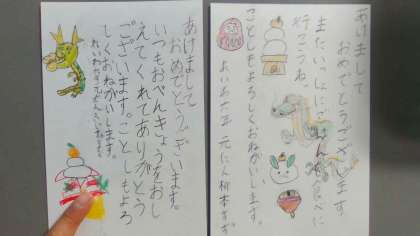 あけまして
おめでとうございます。
いつもおべんきょうをおし
えてくれてありがとう
ございます。ことしもよろ
しくおねがいします。
あけまして
おめでとうございます。
またいっしょに
食べに
行こうね。
ことしもよろしくおねがいします。